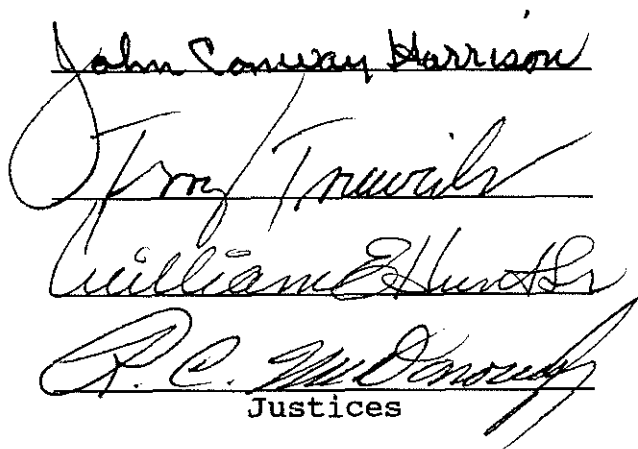 John Conway Harrison
Terry Trieweiler
William E Hunt Sr
R. C. McDonough
Justices